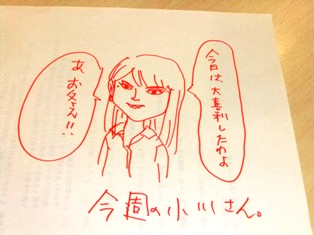 今日は、大喜利したわよ
あ、お父さん!!
今週の小川さん。